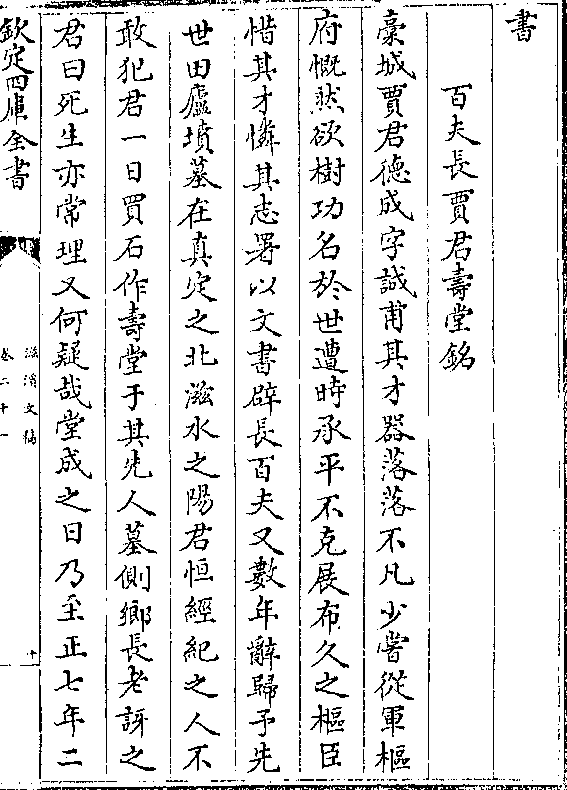 書
百夫長賈君壽堂銘
藁城賈君德成字誠甫其才器落落不凡少嘗從軍樞
府慨然欲樹功名於世遭時承平不克展布久之樞臣
惜其才憐其志署以文書辟長百夫又數年辭歸予先
世田廬墳墓在真定之北滋水之陽君恒經紀之人不
敢犯君一日買石作壽堂于其先人墓側鄉長老訝之
君曰死生亦常理又何疑哉堂成之日乃至正七年二
欽定四庫全書
滋溪文稿
卷二十一
十